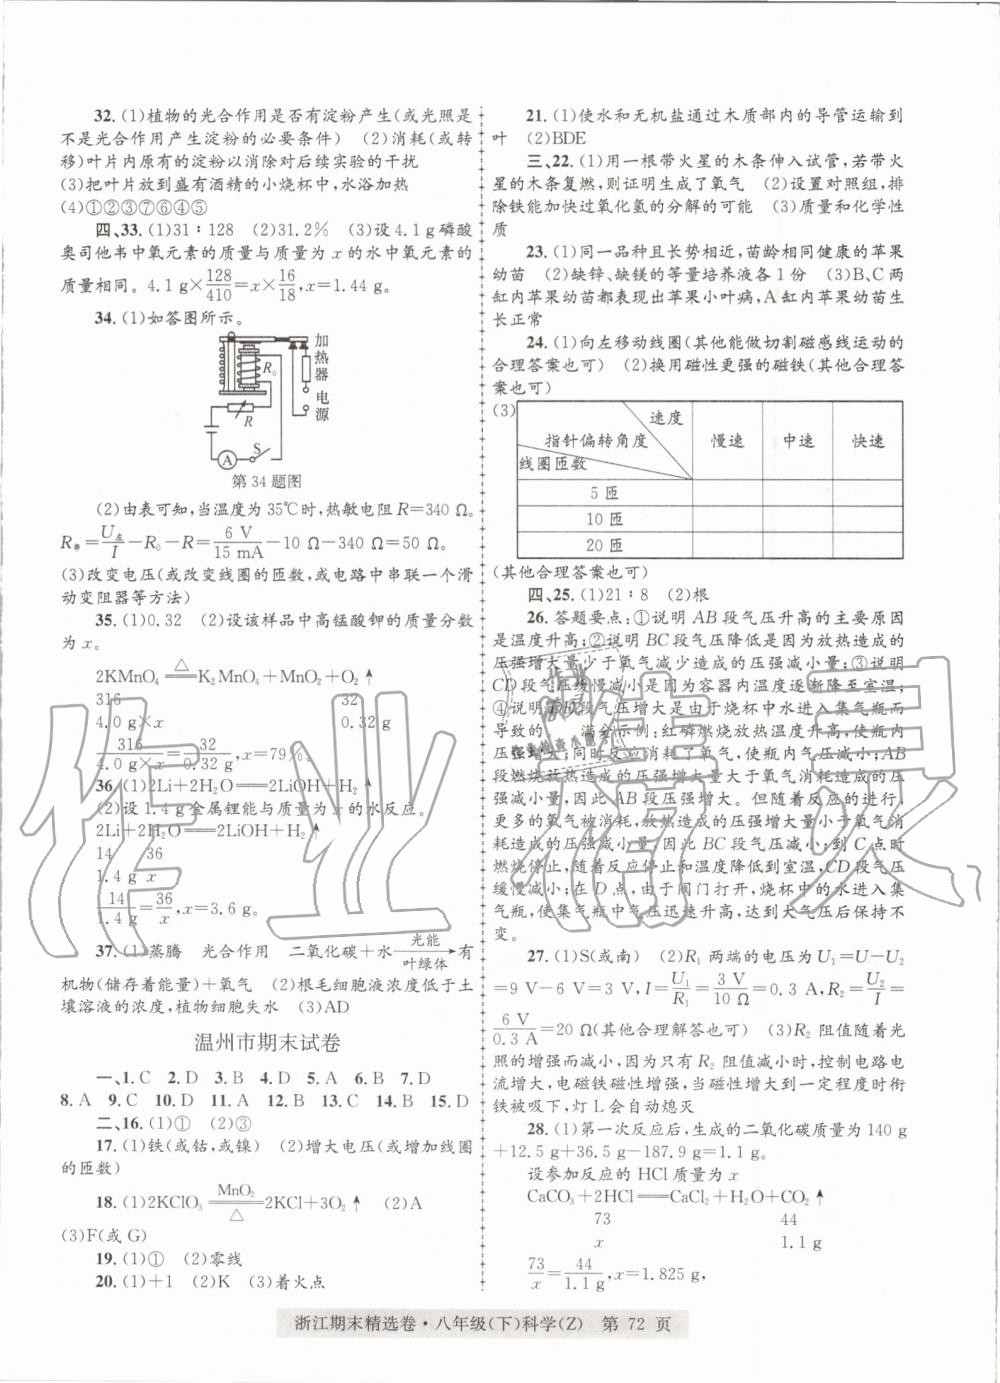 32.(1)植物的光合作用是否有淀粉产生(或光照是
不是光合作用产生淀粉的必要条件) (2)消耗(或转
移)叶片内原有的淀粉以消除对后续实验的干扰
(3)把叶片放到盛有酒精的小烧杯中,水浴加热
(4)①②③⑦⑥④⑤
四、33.(1)31∶128 (2)31.2% (3)设4.1 g磷酸
奥司他韦中氧元素的质量与质量为x的水中氧元素的
质量相同。4.1 g×128/410=x×16/18,x=1.44 g。
34.(1)如答图所示。
加热器
电源
R₀
R
S
A
第34题图
(2)由表可知,当温度为35℃时,热敏电阻R=340 Ω。
R串=U左/I-R₀-R=6 V/15 mA-10 Ω-340 Ω=50 Ω。
(3)改变电压(或改变线圈的匝数,或电路中串联一个滑
动变阻器等方法)
35.(1)0.32 (2)设该样品中高锰酸钾的质量分数
为x。
2KMnO₄ =△= K₂MnO₄+MnO₂+O₂↑
316 32
4.0 g×x 0.32 g
316/4.0 g×x=32/0.32 g,x=79%。
36.(1)2Li+2H₂O══2LiOH+H₂↑
(2)设1.4 g金属锂能与质量为x的水反应。
2Li+2H₂O══2LiOH+H₂↑
14 36
1.4 g x
14/1.4 g=36/x,x=3.6 g。
37.(1)蒸腾 光合作用 二氧化碳+水 光能/叶绿体→有
机物(储存着能量)+氧气 (2)根毛细胞液浓度低于土
壤溶液的浓度,植物细胞失水 (3)AD
温州市期末试卷
一、1.C 2.D 3.B 4.D 5.A 6.B 7.D
8.A 9.C 10.D 11.A 12.B 13.C 14.B 15.D
二、16.(1)① (2)③
17.(1)铁(或钴,或镍) (2)增大电压(或增加线圈
的匝数)
18.(1)2KClO₃ =MnO₂/△= 2KCl+3O₂↑ (2)A
(3)F(或G)
19.(1)① (2)零线
20.(1)+1 (2)K (3)着火点
21.(1)使水和无机盐通过木质部内的导管运输到
叶 (2)BDE
三、22.(1)用一根带火星的木条伸入试管,若带火
星的木条复燃,则证明生成了氧气 (2)设置对照组,排
除铁能加快过氧化氢的分解的可能 (3)质量和化学性
质
23.(1)同一品种且长势相近,苗龄相同健康的苹果
幼苗 (2)缺锌、缺镁的等量培养液各1份 (3)B、C两
缸内苹果幼苗都表现出苹果小叶病,A缸内苹果幼苗生
长正常
24.(1)向左移动线圈(其他能做切割磁感线运动的
合理答案也可) (2)换用磁性更强的磁铁(其他合理答
案也可)
(3)
速度
指针偏转角度
线圈匝数
慢速 中速 快速
5匝
10匝
20匝
(其他合理答案也可)
四、25.(1)21∶8 (2)根
26.答题要点:①说明AB段气压升高的主要原因
是温度升高;②说明BC段气压降低是因为放热造成的
压强增大量少于氧气减少造成的压强减小量;③说明
CD段气压缓慢减小是因为容器内温度逐渐降至室温;
④说明 段气压增大是由于烧杯中水进入集气瓶而
导致的 满分示例:红磷燃烧放热温度升高,使瓶内
压强增大;同时反应消耗了氧气,使瓶内气压减小;AB
段燃烧放热造成的压强增大量大于氧气减少造成的压
强减小量,因此AB段压强增大。但随着反应的进行,
更多的氧气被消耗,放热造成的压强增大量小于氧气消
耗造成的压强减小量,因此BC段压强减小;到C点时
燃烧停止,随着反应停止和温度降低到室温,CD段气压
缓慢减小;在D点,由于阀门打开,烧杯中的水进入集
气瓶,使集气瓶中气压迅速升高,达到大气压后保持不
变。
27.(1)S(或南) (2)R₁两端的电压为U₁=U-U₂
=9 V-6 V=3 V,I=U₁/R₁=3 V/10 Ω=0.3 A,R₂=U₂/I=
6 V/0.3 A=20 Ω(其他合理解答也可) (3)R₂阻值随着光
照的增强而减小,因为只有R₂减小时,控制电路电
流增大,电磁铁磁性增强,当磁性增大到一定程度时衔
铁被吸下,灯L会自动熄灭
28.(1)第一次反应后,生成的二氧化碳质量为140 g
+12.5 g+36.5 g-187.9 g=1.1 g。
设参加反应的HCl质量为x
CaCO₃+2HCl══CaCl₂+H₂O+CO₂↑
73 44
x 1.1 g
73/x=44/1.1 g,x=1.825 g,
浙江期末精选卷·八年级(下)科学(Z) 第 72 页
作业精灵